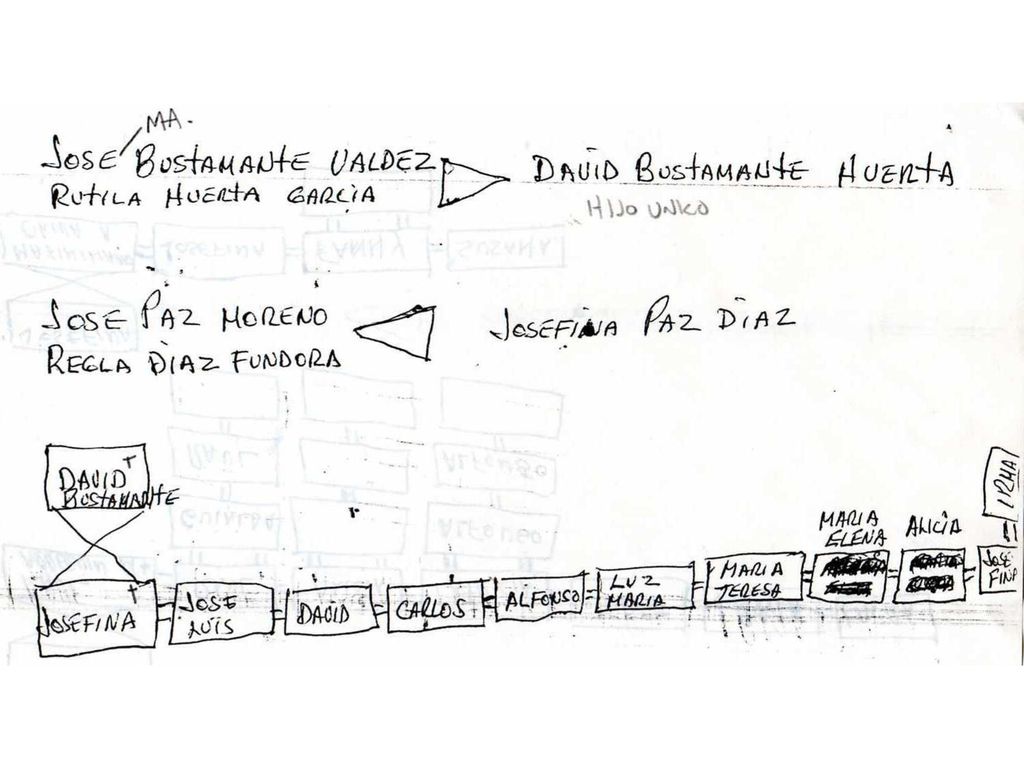 MA.
JOSE BUSTAMANTE VALDEZ
RUTILA HUERTA GARCIA
DAVID BUSTAMANTE HUERTA
HIJO UNICO
JOSE PAZ MORENO
REGLA DIAZ FUNDORA
JOSEFINA PAZ DIAZ
DAVID †
BUSTAMANTE
JOSEFINA †
JOSE
LUIS
DAVID
CARLOS
ALFONSO
LUZ
MARIA
MARIA
TERESA
MARIA
ELENA
ALICIA
JOSE
FINA
IRMA
FANNY
SUZANA
JOSEFINA
RAUL
ALFONSO
ALFONSO